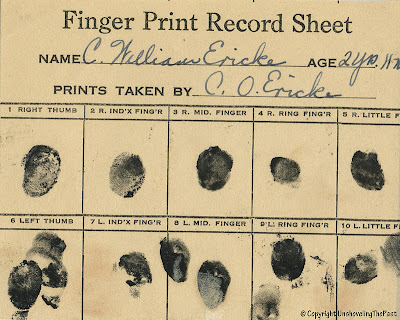 Finger Print Record Sheet
NAME C. William Ericke AGE 2 yrs.
PRINTS TAKEN BY C. O. Ericke
1 RIGHT THUMB 2 R. IND'X FING'R 3 R. MID. FINGER 4 R. RING FING'R 5 R. LITTLE F
6 LEFT THUMB 7 L. IND'X FING'R 8 L. MID. FINGER 9 L. RING FING'R 10 L. LITTLE F
© Copyright UnshovelingThePast